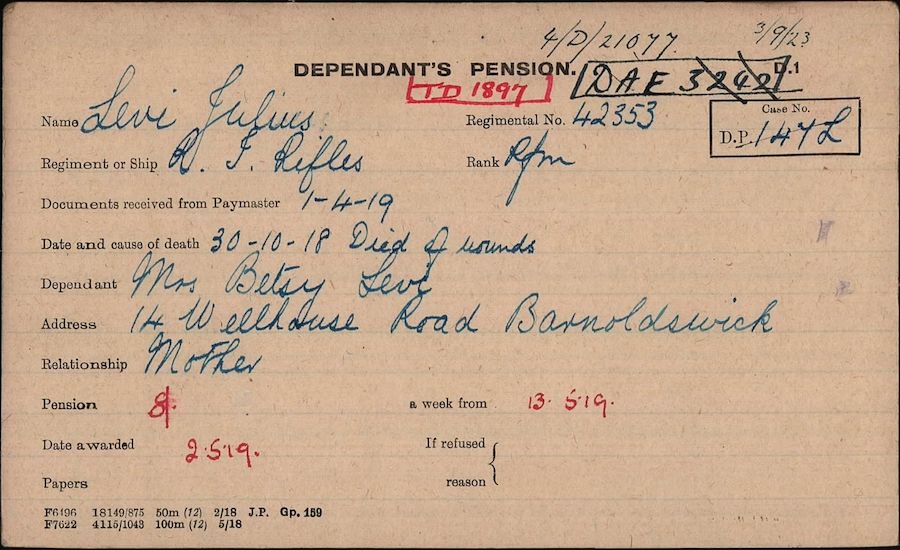 4/D/21077. 3/9/23
DEPENDANT'S PENSION. D.1
TD 1897 DAF 3242
Name Levi Julius Regimental No. 42353
Case No.
D.P. 147L
Regiment or Ship R. I. Rifles Rank Rfm
Documents received from Paymaster 1-4-19
Date and cause of death 30-10-18 Died of wounds
Dependant Mrs Betsy Levi
Address 14 Wellhouse Road Barnoldswick
Relationship Mother
Pension a week from 13.5.19.
Date awarded 2.5.19. If refused
Papers reason
F6196 18149/875 50m (12) 2/18 J.P. Gp. 159
F7622 4115/1043 100m (12) 5/18